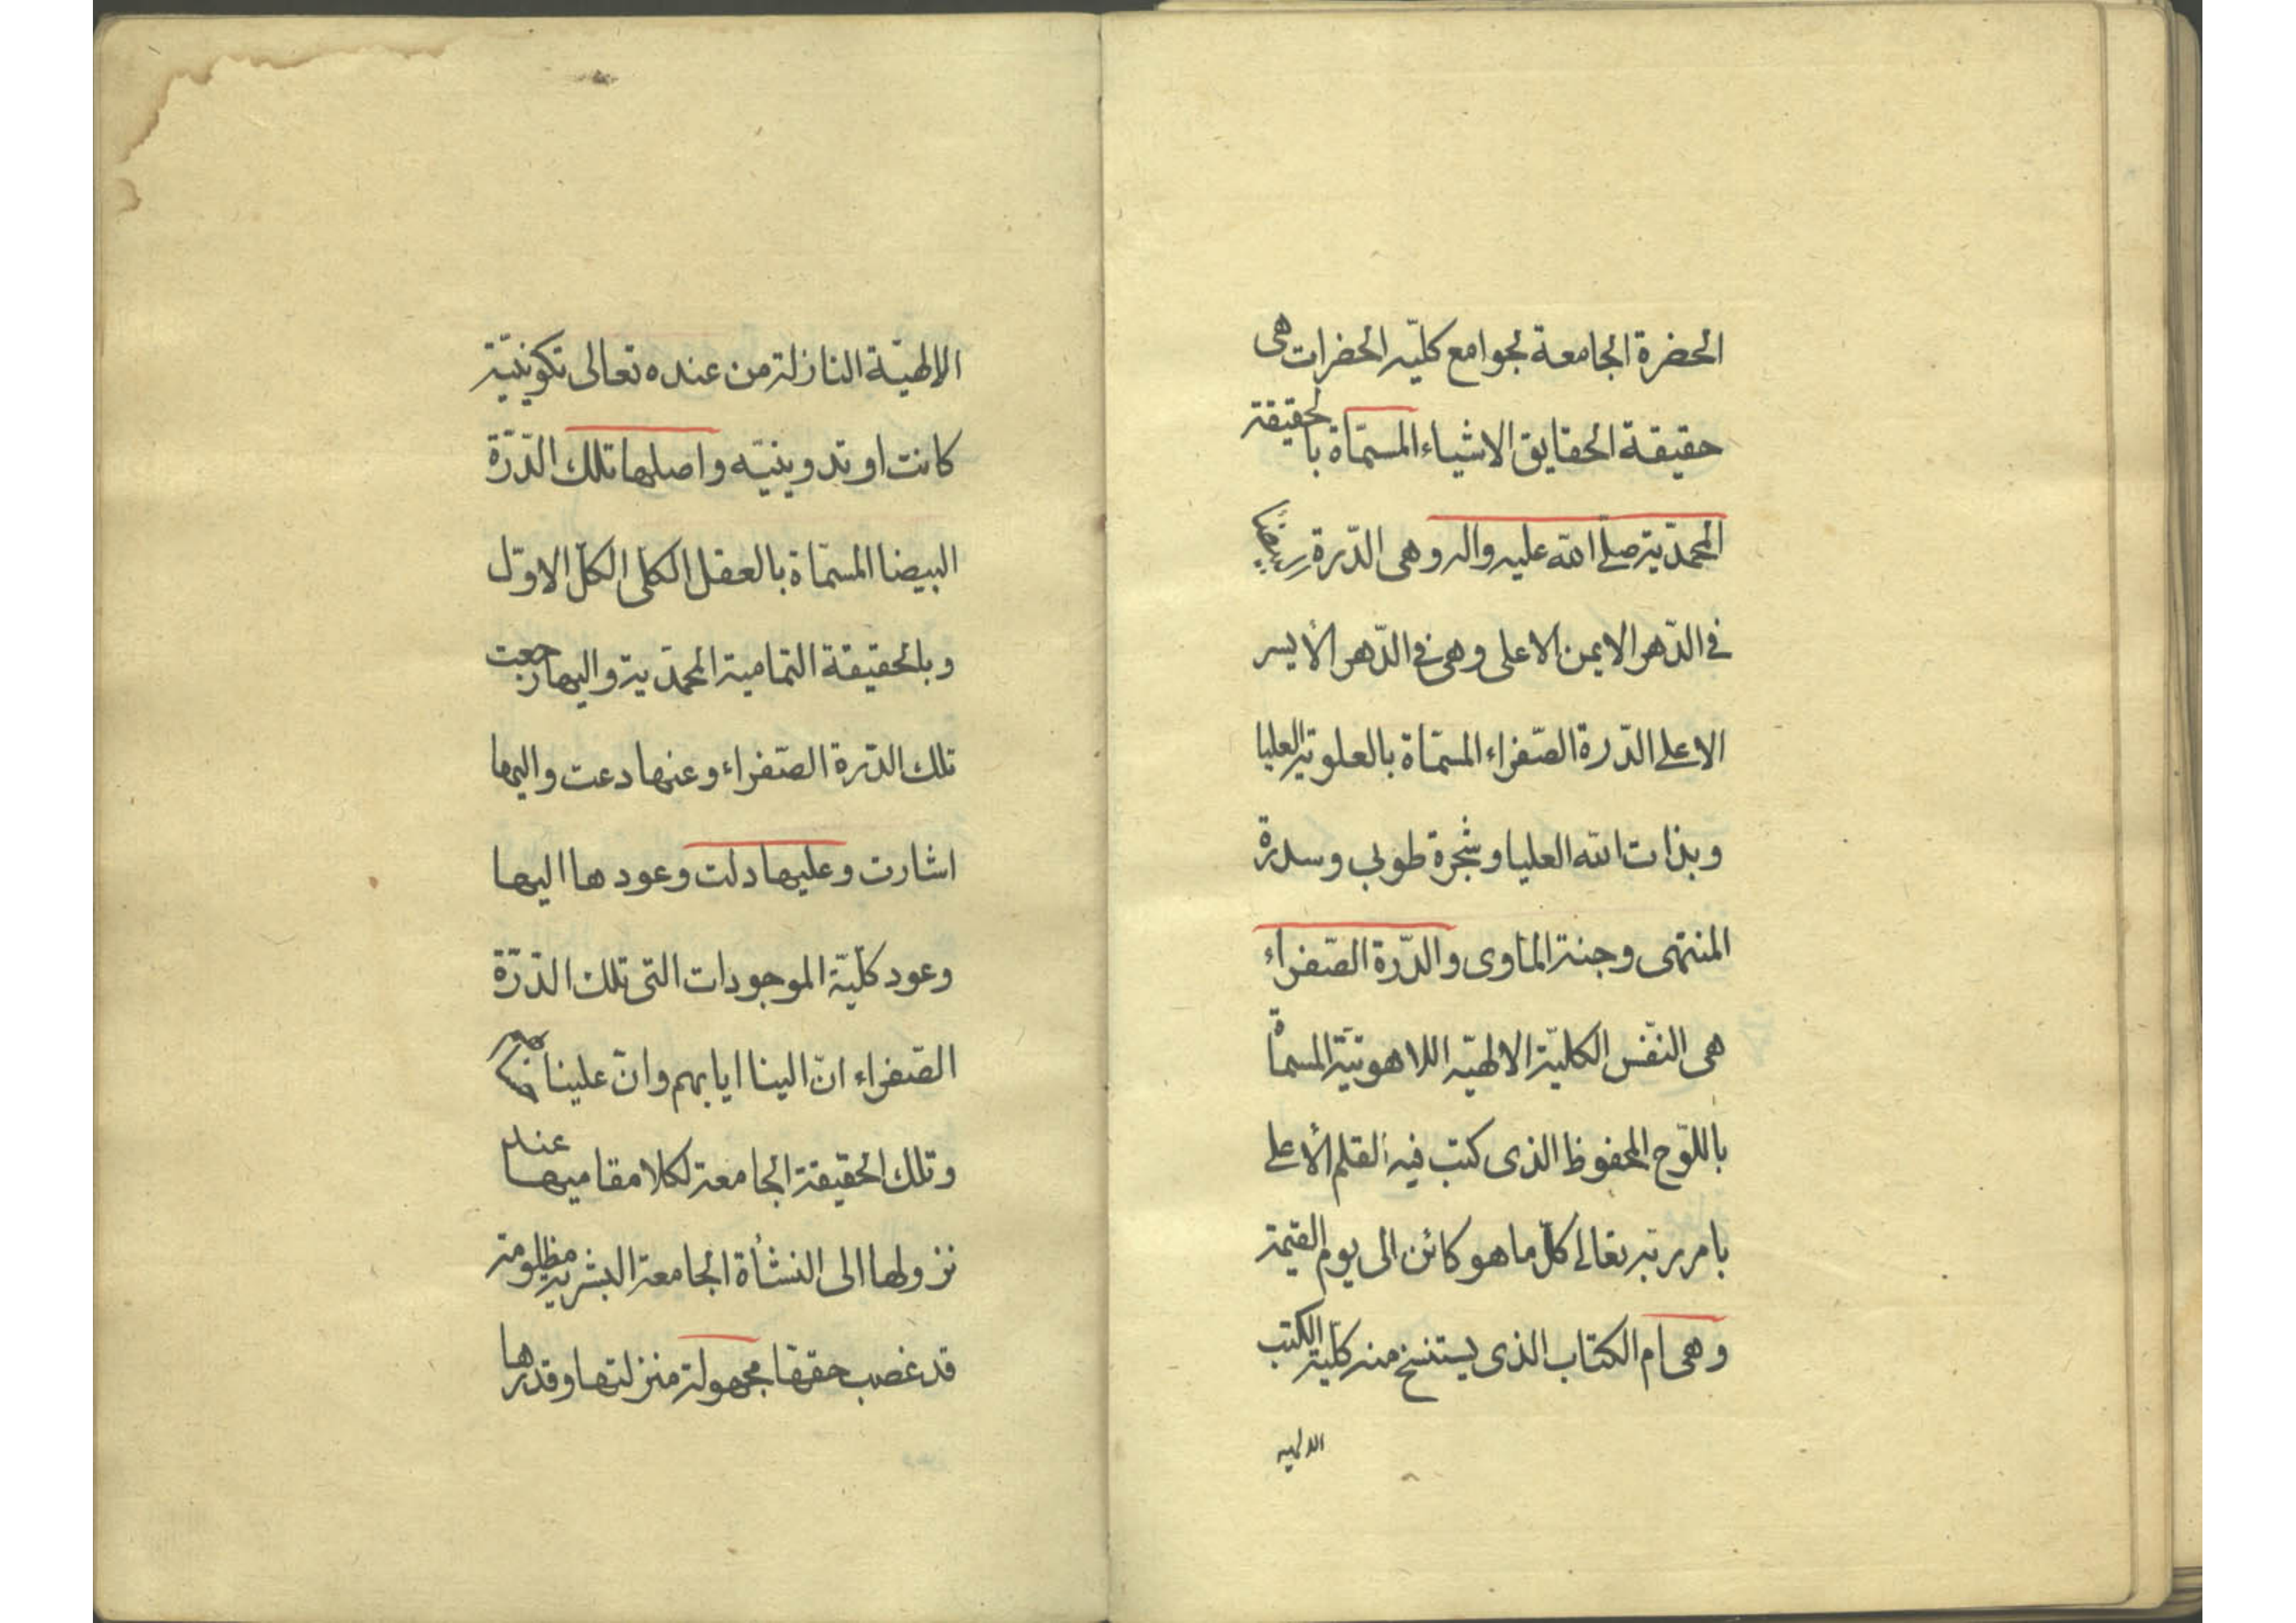 الحضرة الجامعة لجوامع كليّه الحضرات هى
حقيقة الحقايق الاشياء المسمّاة بالحقيقة
المحمّديّة صلّى الله عليه واله وهى الدّرة البيضاء
فى الدّهر الايمن الاعلى وهى فى الدّهر الأيسر
الاعلى الدّرة الصّفراء المسمّاة بالعلويّة العليا
وبذات الله العليا وشجرة طوبى وسدرة
المنتهى وجنة المأوى والدّرة الصّفراء
هى النّفس الكليّة الالهيّه اللاهوتيّة المسماة
باللّوح المحفوظ الذى كتب فيه القلم الأعلى
بامر ربّه تعالى كلّ ما هو كائن الى يوم القيمة
وهى ام الكتاب الذى يستنسخ منه كليّة الكتب
الالهيه
الالهيّة النازلة من عنده تعالى تكوينيّة
كانت او تدوينيّه واصلها تلك الدّرّة
البيضا المسمّاة بالعقل الكلّى الكلّ الاوّل
وبالحقيقة التمامية المحمّديّة واليها رجعت
تلك الدّرة الصّفراء وعنها دعت واليها
اشارت وعليها دلت وعودها اليها
وعود كلّيّة الموجودات التى تلك الدّرّة
الصّفراء انّ الينا ايابهم وانّ علينا حسابهم
وتلك الحقيقة الجامعة لكلا مقاميها عند
نزولها الى النشأة الجامعة البشرية مظلومة
قد غصب حقها مجهولة منزلتها وقدرها